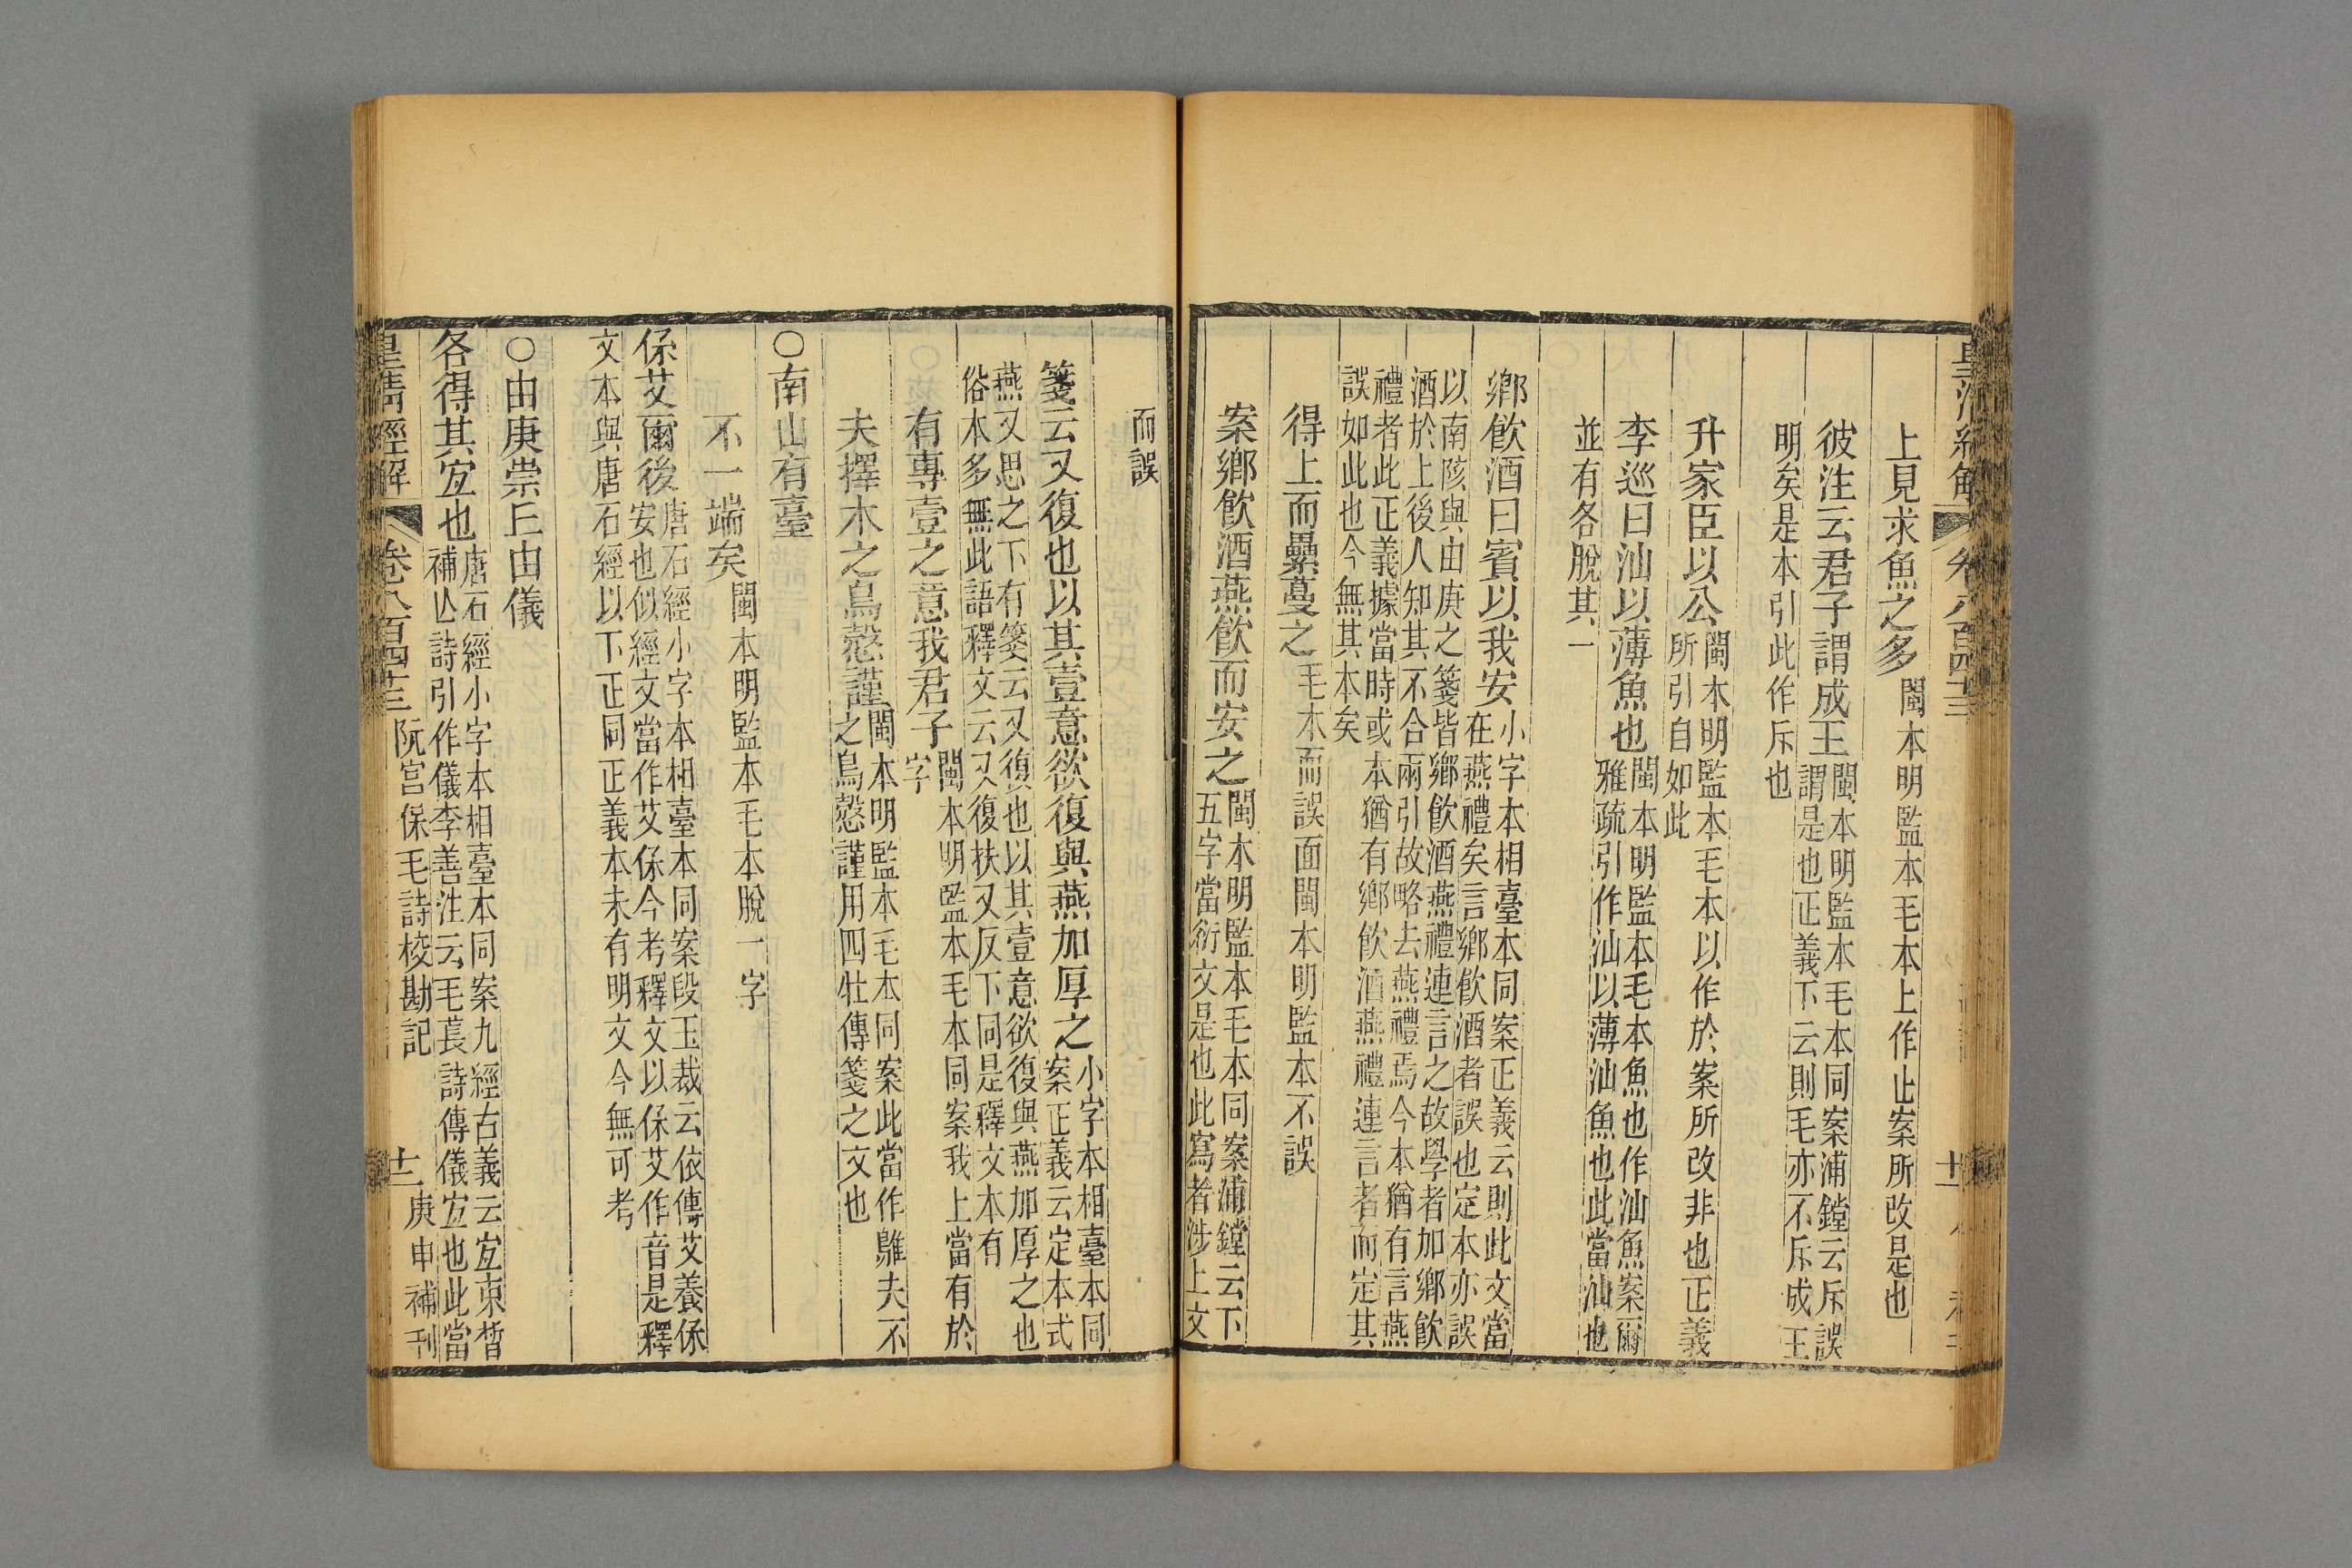 皇清經解 卷八百四十三
上見求魚之多閩本明監本毛本上作止案所改是也
彼注云君子謂成王閩本明監本毛本同案浦鏜云斥誤
謂是也正義下云則毛亦不斥成王
明矣是本引此作斥也
升家臣以公閩本明監本毛本以作於案所改非也正義
所引自如此
李巡曰汕以薄魚也閩本明監本毛本魚也作汕魚案爾
雅疏引作汕以薄汕魚也此當汕也
並有各脫其一
鄉飲酒曰賓以我安小字本相臺本同案正義云則此文當
在燕禮矣言鄉飲酒者誤也定本亦誤
以南陔與由庚之箋皆鄉飲酒燕禮連言之故學者加鄉飲
酒於上後人知其不合兩引故略去燕禮焉今本猶有言燕
禮者此正義據當時或本猶有鄉飲酒燕禮連言者而定其
誤如此也今無其本矣
得上而纍蔓之毛本而誤面閩本明監本不誤
案鄉飲酒燕飲而安之閩本明監本毛本同案浦鏜云下
五字當衍文是也此寫者涉上文
而誤
箋云又復也以其壹意欲復與燕加厚之小字本相臺本同
案正義云定本式
燕又思之下有箋云又復也以其壹意欲復與燕加厚之也
俗本多無此語釋文云又復扶又反下同是釋文本有
有專壹之意我君子閩本明監本毛本同案我上當有於
字
夫擇木之鳥慤謹閩本明監本毛本同案此當作鵻夫不
之鳥慤謹用四牡傳箋之文也
○南山有臺
不一端矣閩本明監本毛本脫一字
保艾爾後唐石經小字本相臺本同案段玉裁云依傳艾養保
安也似經文當作艾保今考釋文以保艾作音是釋
文本與唐石經以下正同正義本未有明文今無可考
○由庚崇丘由儀
各得其宜也唐石經小字本相臺本同案九經古義云宜束皙
補亾詩引作儀李善注云毛萇詩傳儀宜也此當
皇清經解 卷八百四十三 阮宮保毛詩校勘記 十二 庚申補刊